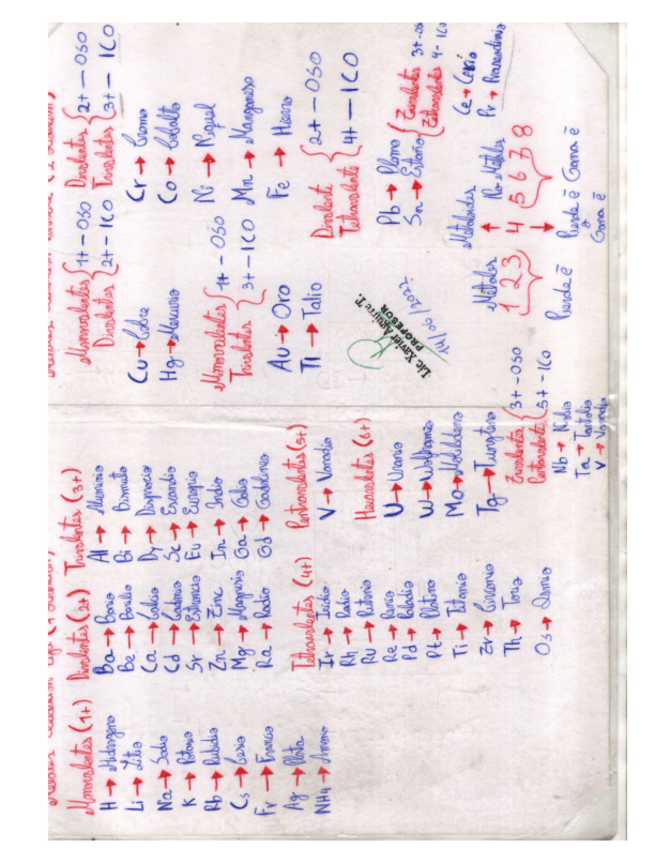 Monovalentes (1+)
H → Hidrogeno
Li → Litio
Na → Sodio
K → Potasio
Rb → Rubidio
Cs → Cesio
Fr → Francio
Ag → Plata
NH4 → Amonio
Divalentes (2+)
Ba → Bario
Be → Berilio
Ca → Calcio
Cd → Cadmio
Sr → Estroncio
Zn → Zinc
Mg → Magnesio
Ra → Radio
Trivalentes (3+)
Al → Aluminio
Bi → Bismuto
Dy → Disprosio
Sc → Escandio
Eu → Europio
In → Indio
Ga → Galio
Gd → Gadolinio
Tetravalentes (4+)
Ir → Iridio
Rh → Rodio
Ru → Rutenio
Re → Renio
Pd → Paladio
Pt → Platino
Ti → Titanio
Zr → Circonio
Th → Torio
Os → Osmio
Pentavalentes (5+)
V → Vanadio
Hexavalentes (6+)
U → Uranio
W → Wolframio
Mo → Molibdeno
Tg → Tungsteno
Trivalentes 3+ - OSO
Pentavalentes 5+ - ICO
Nb → Niobio
Ta → Tantalio
V → Vanadio
Monovalentes 1+ - OSO
Divalentes 2+ - ICO
Cu → Cobre
Hg → Mercurio
Monovalentes 1+ - OSO
Trivalentes 3+ - ICO
Au → Oro
Tl → Talio
Lic. Xavier Aguirre T.
PROFESOR
14/06/2022
Divalentes 2+ - OSO
Trivalentes 3+ - ICO
Cr → Cromo
Co → Cobalto
Ni → Niquel
Mn → Manganeso
Fe → Hierro
Divalente 2+ - OSO
Tetravalente 4+ - ICO
Pb → Plomo
Sn → Estaño
Trivalentes 3+ - OSO
Tetravalentes 4 - ICO
Ce → Cerio
Pr → Praseodimio
Metaloides
Metales No Metales
1 2 3 4 5 6 7 8
Pierde ē Pierde ē y Gana ē Gana ē